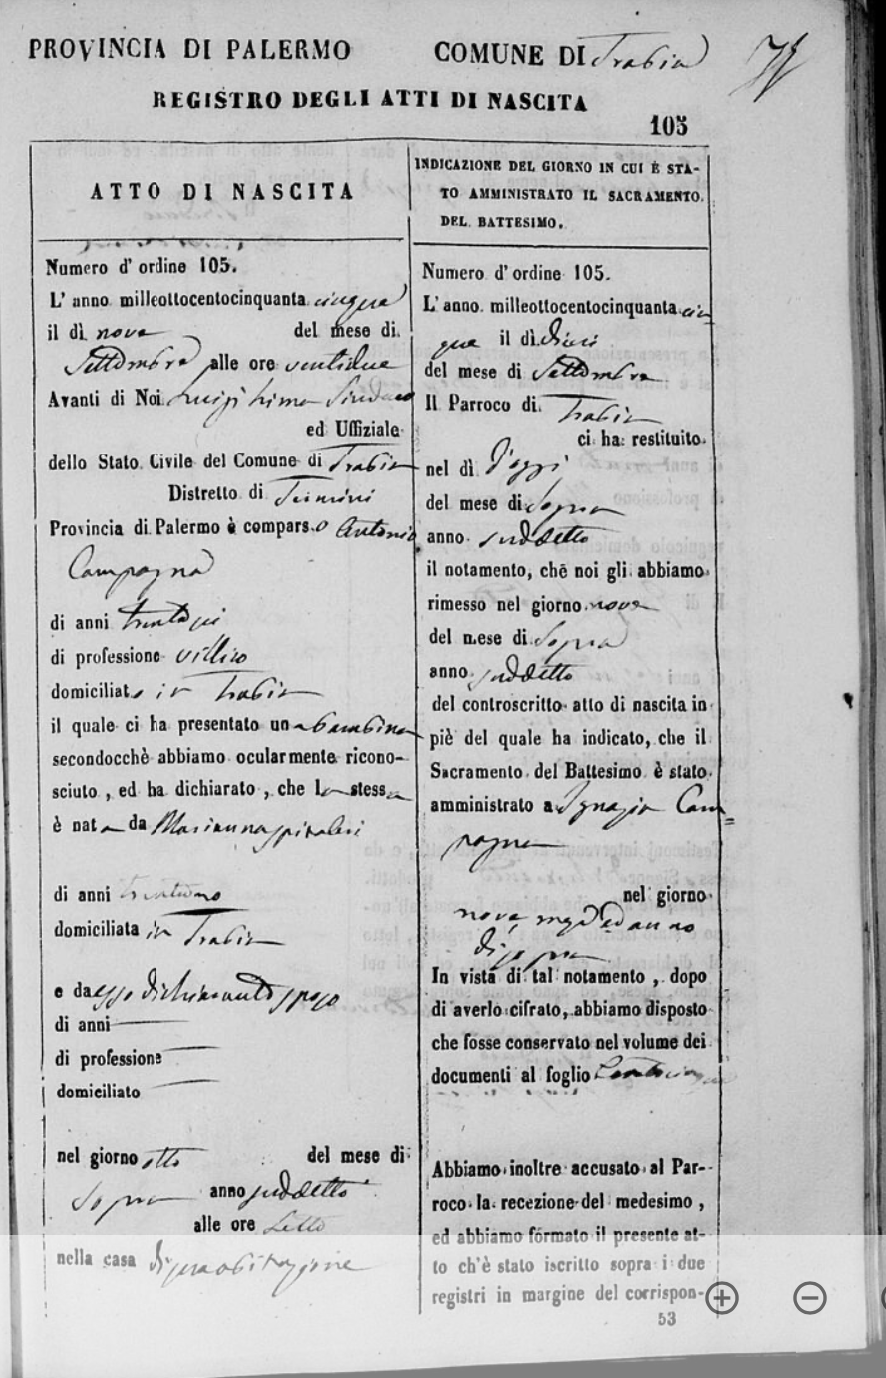 PROVINCIA DI PALERMO COMUNE DI Trabia
REGISTRO DEGLI ATTI DI NASCITA
105
ATTO DI NASCITA
Numero d' ordine 105.
L' anno milleottocentocinquanta cinque
il dì nove del mese di
Settembre alle ore ventidue
Avanti di Noi Luigi Sindaco
ed Uffiziale
dello Stato Civile del Comune di Trabia
Distretto di Termini
Provincia di Palermo è comparso Antonio
Campagna
di anni trentasei
di professione villico
domiciliato in Trabia
il quale ci ha presentato una bambina
secondocchè abbiamo ocularmente ricono-
sciuto , ed ha dichiarato , che la stessa
è nata da Marianna
di anni trentuno
domiciliata in Trabia
e da esso dichiarante sposo
di anni
di professione
domiciliato
nel giorno otto del mese di
Sopra anno suddetto
alle ore sette
nella casa di sua abitazione
INDICAZIONE DEL GIORNO IN CUI È STA-
TO AMMINISTRATO IL SACRAMENTO
DEL BATTESIMO.
Numero d' ordine 105.
L' anno milleottocentocinquanta cin
que il dì dieci
del mese di Settembre
Il Parroco di Trabia
ci ha restituito
nel dì d'oggi
del mese di Sopra
anno suddetto
il notamento, chè noi gli abbiamo
rimesso nel giorno nove
del mese di Sopra
anno suddetto
del controscritto atto di nascita in
piè del quale ha indicato, che il
Sacramento del Battesimo è stato
amministrato a Ignazia Cam=
pagna
nel giorno
nove, mese ed anno
di sopra
In vista di tal notamento , dopo
di averlo cifrato, abbiamo disposto
che fosse conservato nel volume dei
documenti al foglio
Abbiamo inoltre accusato al Par-
roco la recezione del medesimo ,
ed abbiamo formato il presente at-
to ch'è stato iscritto sopra i due
registri in margine del corrispon-
53